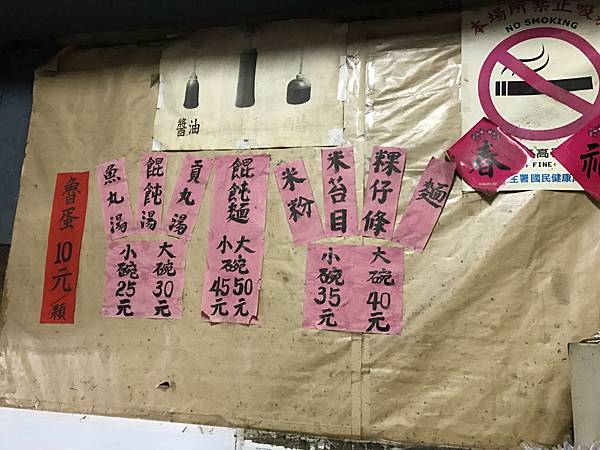 醬油
醋
本場所禁止吸
NO SMOKING
FINE
署國民健康
春
魯蛋10元/顆
魚丸湯
餛飩湯
貢丸湯
小碗25元
大碗30元
餛飩麵
小碗45元
大碗50元
米粉
米苔目
粿仔條
麵
小碗35元
大碗40元